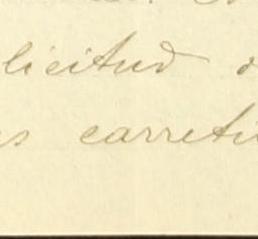 licitud
s carreti